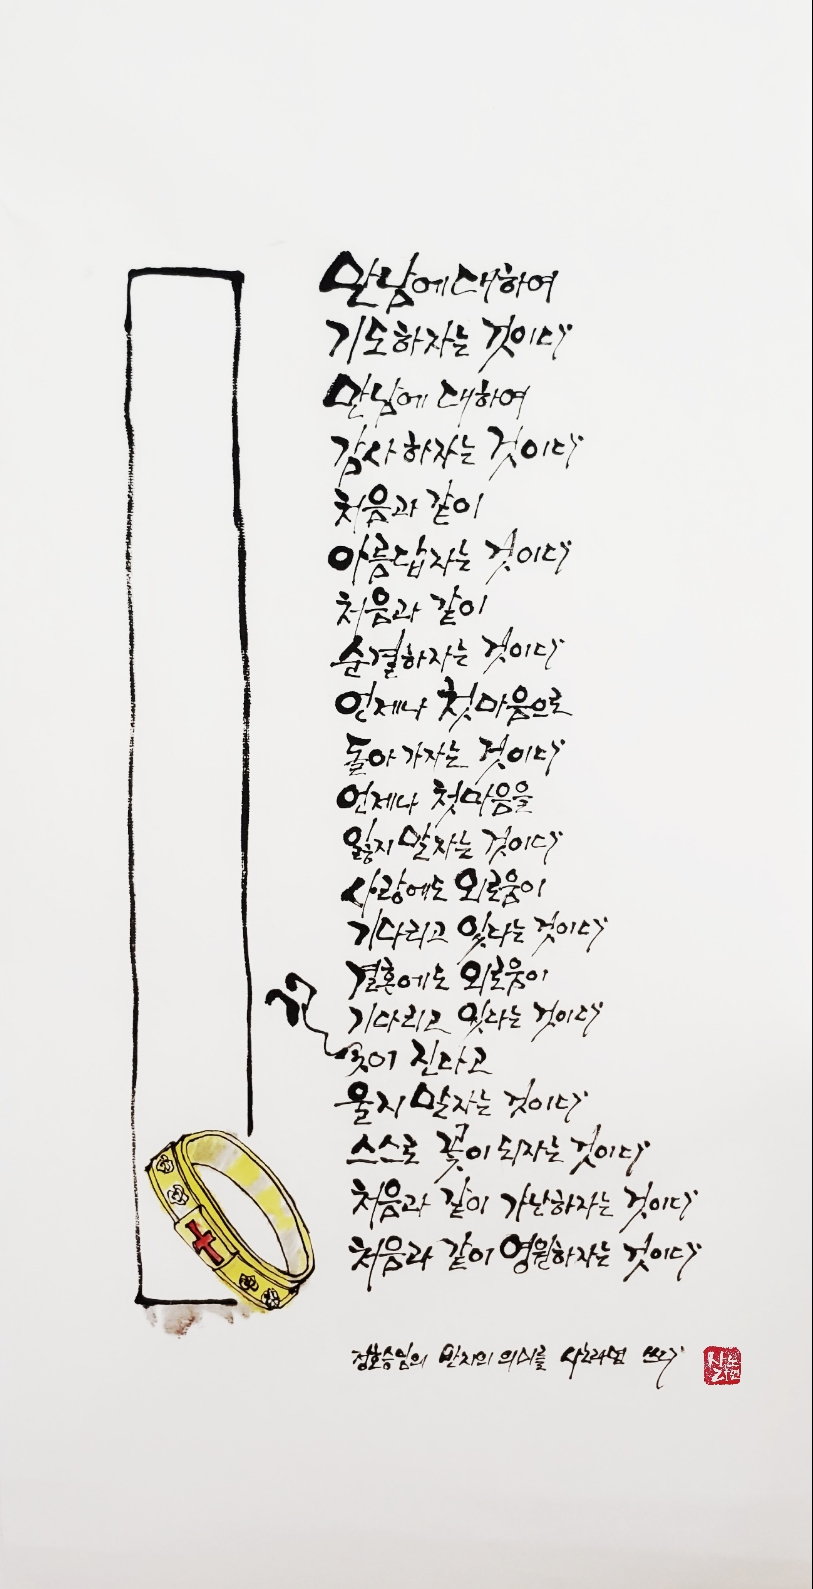 만남에 대하여
기도하자는 것이다
만남에 대하여
감사하자는 것이다
처음과 같이
아름답자는 것이다
처음과 같이
순결하자는 것이다
언제나 첫마음으로
돌아가자는 것이다
언제나 첫마음을
잃지 말자는 것이다
사랑에도 외로움이
기다리고 있다는 것이다
결혼에도 외로움이
기다리고 있다는 것이다
꽃이 진다고
울지 말자는 것이다
스스로 꽃이 되자는 것이다
처음과 같이 가난하자는 것이다
처음과 같이 영원하자는 것이다
정호승님의 반지의 의미를 쓰다